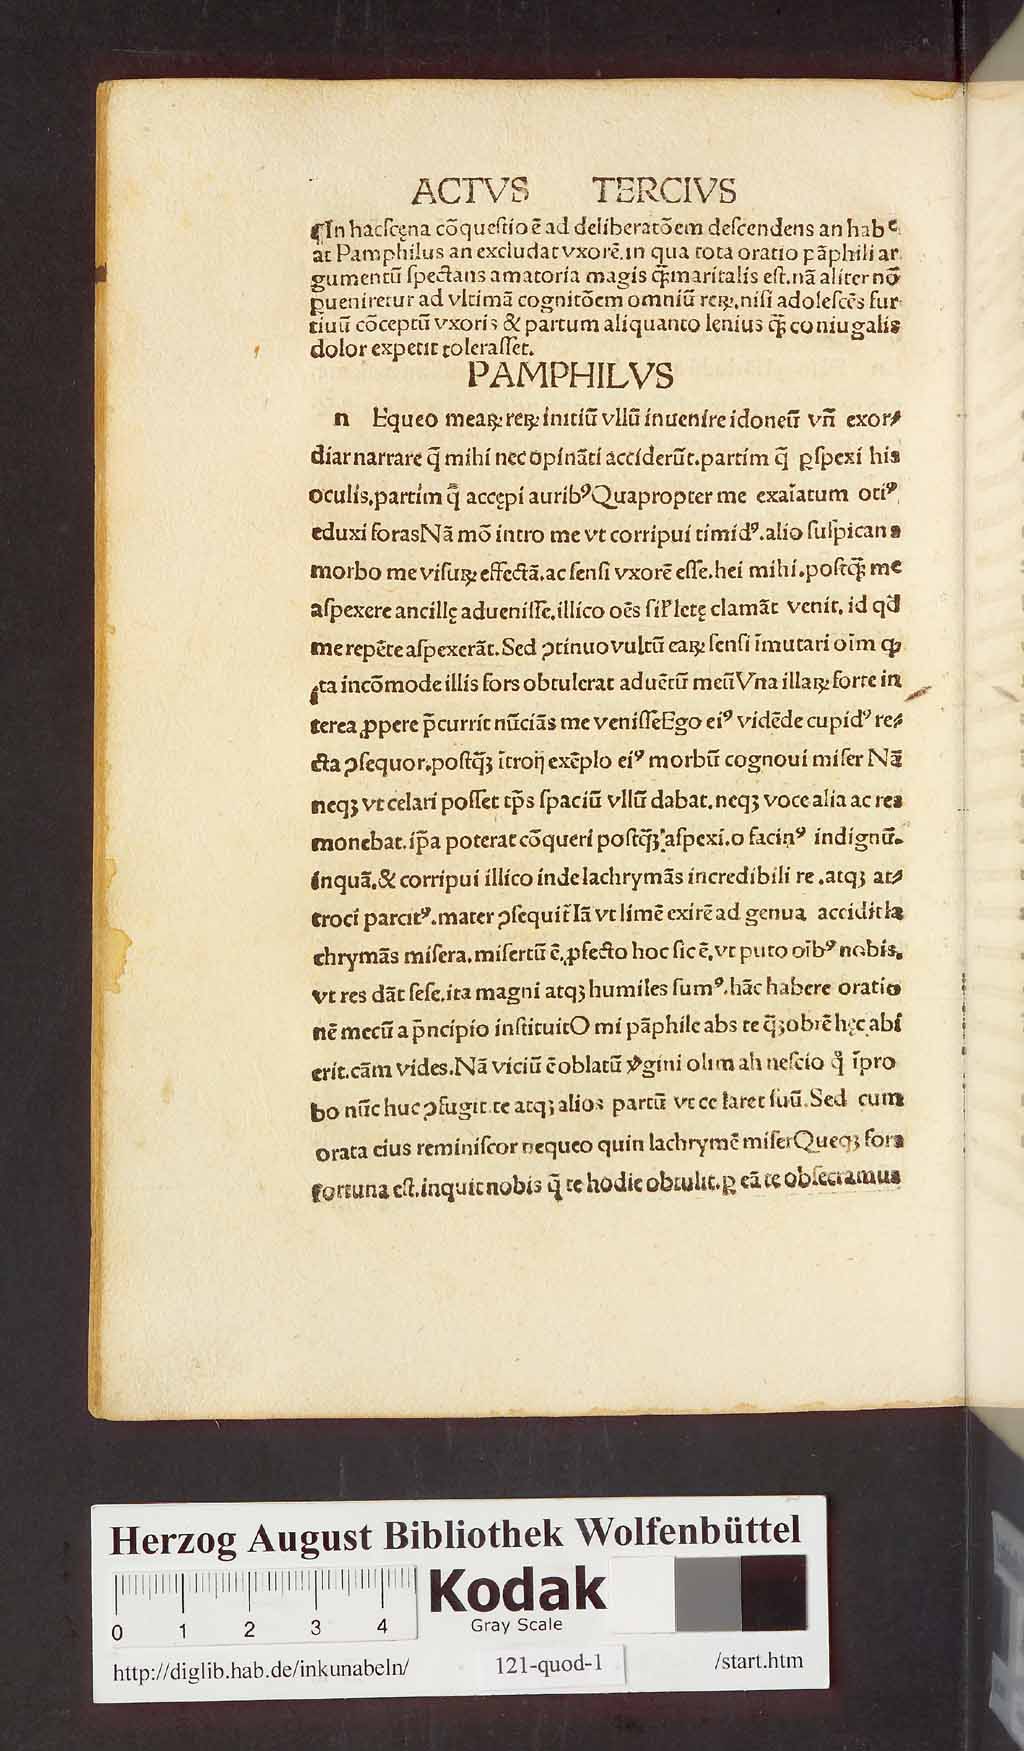 ACTVS TERCIVS
¶In hacſcęna cõqueſtio ē ad deliberatõem deſcendens an habe
at Pamphilus an excludat vxorē. in qua tota oratio pãphili ar
gumentũ ſpectans amatoria magis q̃ꝫ maritalis eſt. nã aliter nõ
ꝑueniretur ad vltimã cognitõem omniũ reꝝ, niſi adoleſcẽs fur
tiuũ cõceptũ vxoris & partum aliquanto lenius q̃ꝫ coniugalis
dolor expetit toleraſſet.
PAMPHILVS
n Equeo meaꝝ reꝝ initiũ vllũ inuenire idoneũ vñ exor⸗
diar narrare q̃ mihi nec opinãti acciderũt. partim q̃ ꝑſpexi his
oculis. partim q̃ accępi auribꝰ Quapropter me exaĩatum otiꝰ
eduxi foras Nã mõ intro me vt corripui timidꝰ. alio ſuſpicans
morbo me viſuꝝ effectã. ac ſenſi vxorē eſſe. hei mihi. poſtq̃ꝫ me
aſpexere ancillę adueniſſe. illico oẽs ſiꝉ lętę clamãt venit. id qđ
me repẽte aſpexerãt. Sed ꝯtinuo vultũ eaꝝ ſenſi ĩmutari oĩm qꝫ
ita incõmode illis fors obtulerat aduẽtũ meũ Vna illaꝝ forte in
terea ꝓpere p̃currit nũciãs me veniſſē Ego eiꝰ vidẽde cupidꝰ re⸗
cta ꝯſequor. poſtq̃ꝫ ĩtroij exẽplo eiꝰ morbũ cognoui miſer Nã
neqꝫ vt celari poſſet tp̃s ſpaciũ vllũ dabat. neqꝫ voce alia ac res
monebat. ip̃a poterat cõqueri poſtq̃ꝫ aſpexi. o facinꝰ indignũ.
inquã. & corripui illico inde lachrymãs incredibili re. atqꝫ at⸗
troci parcitꝰ. mater ꝯſequit̃ Iã vt limē exirē ad genua accidit la
chrymãs miſera. miſertũ ē. ꝓfecto hoc ſic ē. vt puto oĩbꝰ nobis.
vt res dãt ſeſe. ita magni atqꝫ humiles ſumꝰ. hãc habere oratio
nē mecũ a p̃ncipio inſtituit O mi pãphile abs te q̃ꝫobrē hęc abi
erit. cãm vides. Nã viciũ ē oblatũ v̓gini olim ah neſcio q̊ ĩpro
bo nũc huc ꝯfugit. te atqꝫ alios partũ vt ce laret ſuũ. Sed cum
orata eius reminiſcor nequeo quin lachrymē miſer Queqꝫ fors
fortuna eſt. inquit nobis q̃ te hodie obtulit. ꝑ eã te obſecramus
Herzog August Bibliothek Wolfenbüttel
0 1 2 3 4
Kodak
Gray Scale
http://diglib.hab.de/inkunabeln/ 121-quod-1 /start.htm